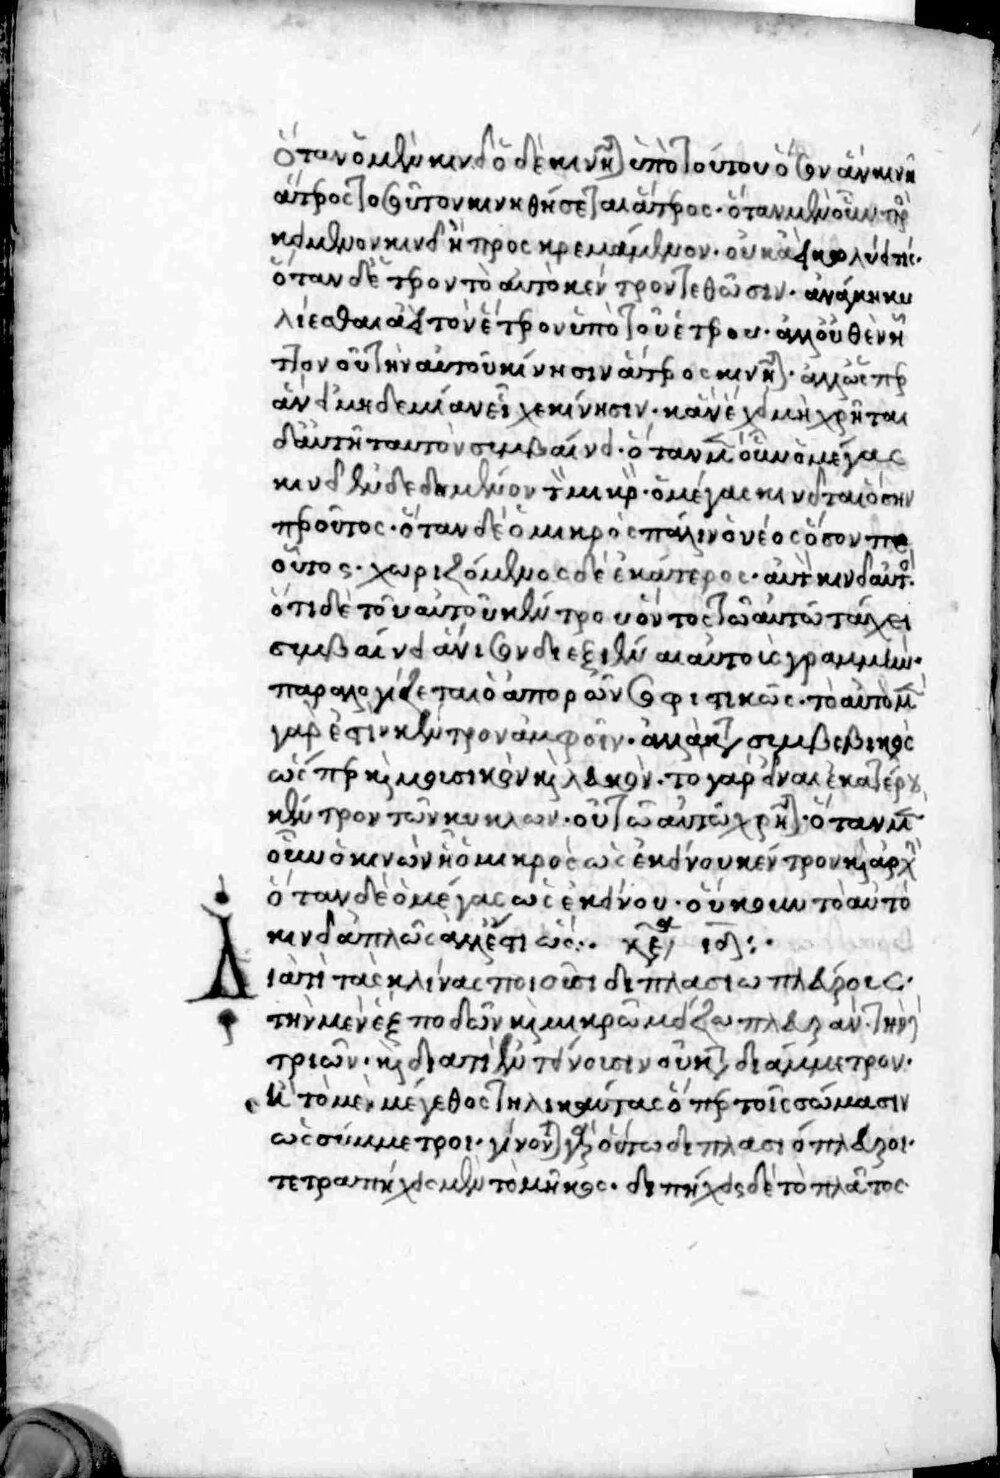 ὅταν ὁ μὲν κινεῖ ὁ δὲ κινῆται ὑπὸ τούτου ὅσον ἂν κινῇ
ἅτερος τοσοῦτον κινηθήσεται ἅτερος· ὅταν μὲν οὖν περι
κείμενον κινεῖ ἢ προσκρεμάμενον· οὐκ ἀεὶ κυλίει·
ὅταν δὲ ἕτερον τὸ αὐτὸ κέντρον τεθῶσιν· ἀνάγκη κυ
λίεσθαι ἀεὶ τὸν ἕτερον ὑπὸ τοῦ ἑτέρου· ἀλλ' οὐθὲν ἧτ
τον οὐ τὴν αὐτοῦ κίνησιν ἅτερος κινεῖται· ἀλλ' ὥσπερ
ἂν εἰ μηδεμίαν εἶχε κίνησιν· κἂν ἔχει μὴ χρῆται
δ' αὐτῇ ταυτὸν συμβαίνει· ὅταν μὲν οὖν ὁ μέγας
κινεῖ ἐνδεδεμένον τὸν μικρὸν· ὁ μέγας κινεῖται ὅσην
περ οὗτος· ὅταν δὲ ὁ μικρὸς πάλιν ὁ νέος ὅσον περ
οὗτος· χωριζόμενος δὲ ἑκάτερος· αὐτὸν κινεῖ αὐτός·
ὅτι δὲ τοῦ αὐτοῦ κέντρου ὄντος τῷ αὐτῷ τάχει
συμβαίνει ἄνισον διεξιέναι αὐτοὺς γραμμήν·
παραλογίζεται ὁ ἀπορῶν σοφιστικῶς· τὸ αὐτὸ μὲν
γάρ ἐστι κέντρον ἀμφοῖν· ἀλλὰ κατὰ συμβεβηκὸς
ὥσπερ καὶ μουσικὸν καὶ λευκὸν· τὸ γὰρ εἶναι ἑκατέρου
κέντρον τῶν κύκλων· οὐ τῷ αὐτῷ χρῆται· ὅταν μὲν
οὖν ὁ κινῶν ᾖ ὁ μικρὸς ὡς ἐκείνου κέντρον καὶ ἀρχὴ
ὅταν δὲ ὁ μέγας ὡς ἐκείνου· οὔκουν τὸ αὐτὸ
κινεῖ ἁπλῶς ἀλλ' ἔστιν ὥς:· κεφ
Διατί τὰς κλίνας ποιοῦσι διπλασιοπλεύρους·
τὴν μὲν ἓξ ποδῶν καὶ μικρῷ μείζω πλευράν· τὴν δὲ
τριῶν· καὶ διατί ἐντείνουσιν οὐ κατὰ διάμετρον·
ἢ τὸ μὲν μέγεθος τηλικαύτας ὅπερ τοῖς σώμασιν
ὡς σύμμετροι· γίνονται γὰρ οὕτω διπλασιόπλευροι·
τετραπήχεις μὲν τὸ μῆκος· διπήχεις δὲ τὸ πλάτος